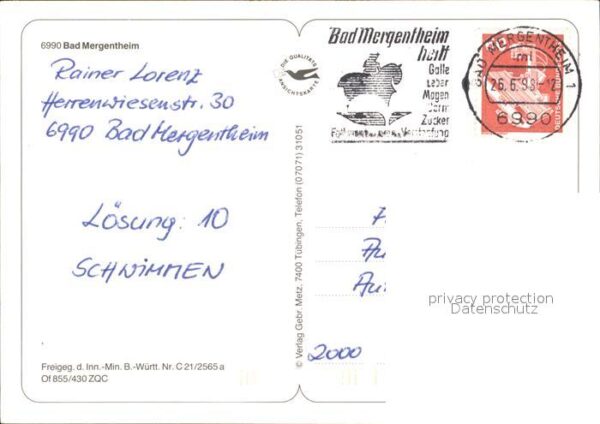 6990 Bad Mergentheim
Rainer Lorenz
Herrenwiesenstr. 30
6990 Bad Mergentheim
Lösung: 10
SCHWIMMEN
Freigeg. d. Inn.-Min. B.-Württ. Nr. C 21/2565 a
Of 855/430 ZQC
© Verlag Gebr. Metz, 7400 Tübingen, Telefon (07071) 31051
DIE QUALITÄTS
ANSICHTSKARTE
Bad Mergentheim
heilt
Galle
Leber
Magen
Darm
Zucker
Verstopfung
BAD MERGENTHEIM 1
6990
privacy protection
Datenschutz
2000